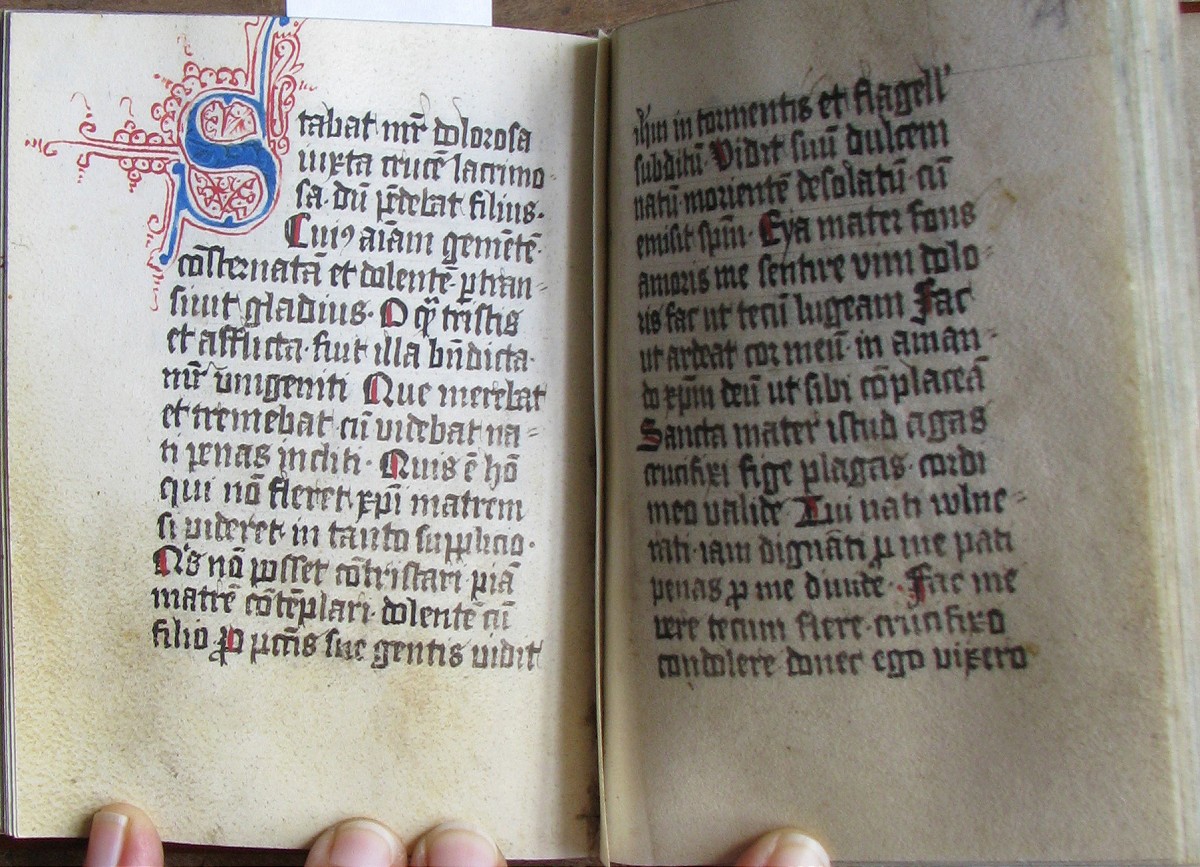 Stabat mr̄ dolorosa
iuxta crucē lacrimo
sa· dū p̄debat filius·
Cuiꝯ aīam gemētē·
cōsternatā et dolentē· ꝑtran
siuit gladius· O qͣ tristis
et afflicta· fuit illa bn̄dicta·
mr̄ vnigeniti Que merebat
et tremebat cū videbat na
ti penas incliti· Quis ē hō
qui nō fleret· xp̄i matrem
si videret· in tanto supplicio·
Q's nō posset cōtristari piā
matrē cōtēplari· dolentē cū
filio Pro pctīs sue gentis vidit
ih̄m in tormentis et flagell'
subditū Vidit suū dulcem
natū· morientē desolatū· cū
emisit spm̄· Eya mater fons
amoris me sentire vim dolo
ris fac ut tecū lugeam Fac
ut ardeat cor meū· in aman
do xp̄m deū ut sibi cōplaceā
Sancta mater istud agas
crucifixi fige plagas· cordi
meo valide Tui nati wlne
rati· iam dignāti ꝓ me pati
penas ꝓ me diuide· Fac me
vere tecum flere· crucifixo
condolere donec ego vixero